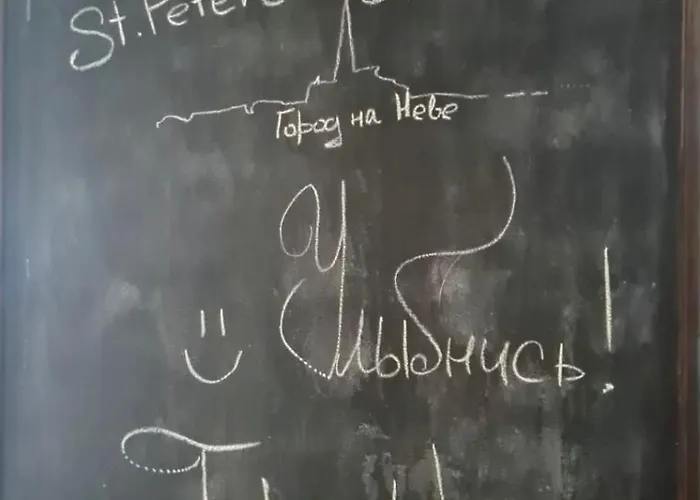 St. Peters
Город на Неве
Улыбнись!